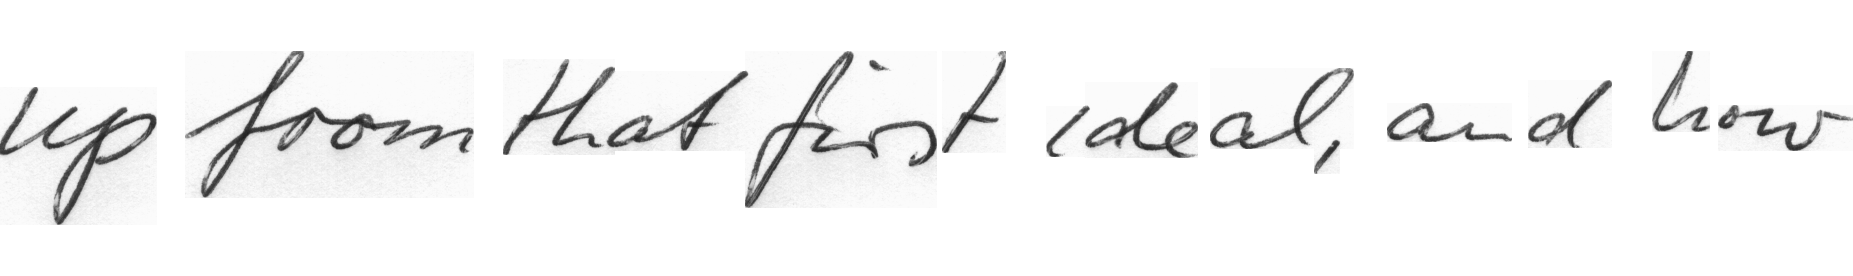 up from that first ideal, and how